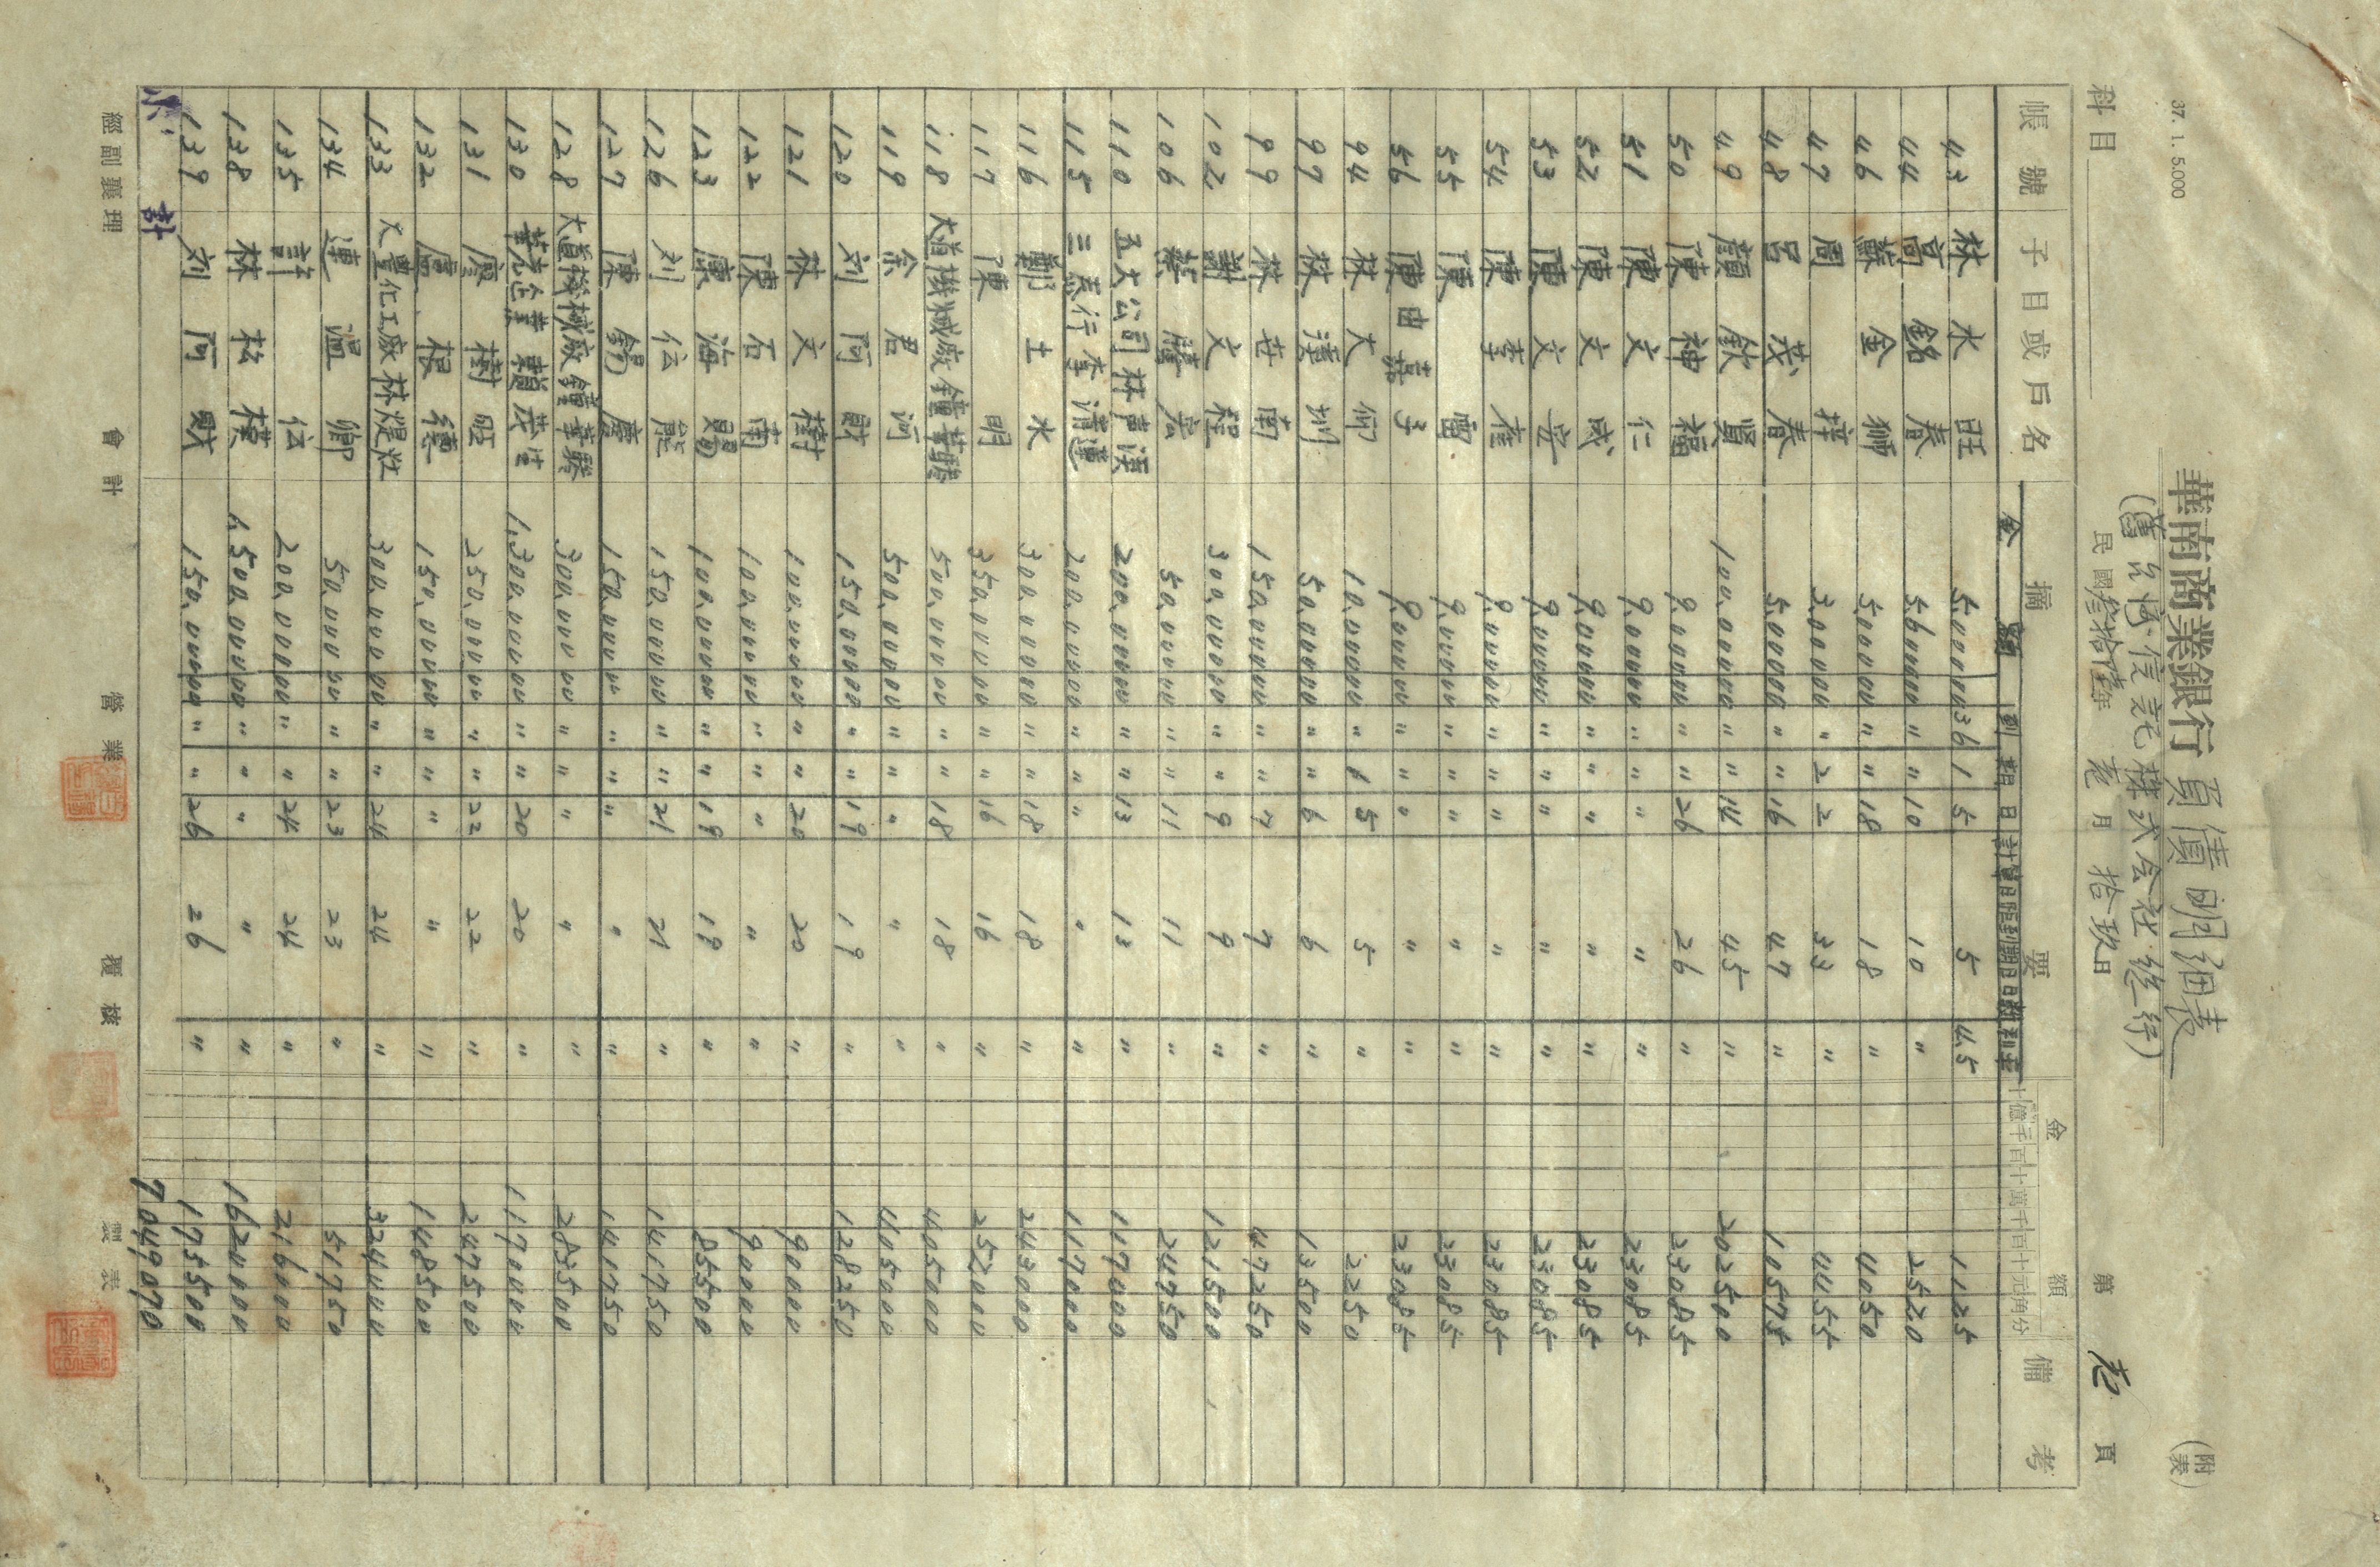 37. 1. 5.000
華南商業銀行 負債明細表 (附表)
(舊台湾信託株式会社總行)
科目 民國參拾陸年 壱月 拾玖日 第 壱 頁
帳號 子目或戶名 摘要 金額 備考
金額 到期日 計算日 利率 十億千百十萬千百十元角分
43 林水旺 5,000 00 36 1 5 5 4.5 1125
44 高銘春 5,600 00 〃 〃 10 10 〃 2520
46 蘇金獅 5,000 00 〃 〃 18 18 〃 4050
47 周 祥 3,000 00 〃 2 2 33 〃 4455
48 呂茂春 5,000 00 〃 〃 16 47 〃 10575
49 顏欽賢 100,000 00 〃 〃 14 45 〃 202500
50 陳神福 9,000 00 〃 〃 26 26 〃 23085
51 陳文仁 9,000 00 〃 〃 〃 〃 〃 23085
52 陳文成 9,000 00 〃 〃 〃 〃 〃 23085
53 陳文安 9,000 00 〃 〃 〃 〃 〃 23085
54 陳 9,000 00 〃 〃 〃 〃 〃 23085
55 陳 9,000 00 〃 〃 〃 〃 〃 23085
56 陳由嘉子 9,000 00 〃 〃 〃 〃 〃 23085
94 林大 10,000 00 〃 1 5 5 〃 2250
97 林漢圳 50,000 00 〃 〃 6 6 〃 13500
99 林世南 150,000 00 〃 〃 7 7 〃 47250
102 謝文程 300,000 00 〃 〃 9 9 〃 121500
106 蔡 50,000 00 〃 〃 11 11 〃 24750
110 五大公司林声漢 200,000 00 〃 〃 13 13 〃 117000
115 三泰行李清蓮 200,000 00 〃 〃 〃 〃 〃 117000
116 鄭土水 300,000 00 〃 〃 18 18 〃 243000
117 陳 明 350,000 00 〃 〃 16 16 〃 252000
118 大首機械廠鐘華 500,000 00 〃 〃 18 18 〃 405000
119 余君河 500,000 00 〃 〃 〃 〃 〃 405000
120 刘阿財 150,000 00 〃 〃 19 19 〃 128250
121 林文樹 100,000 00 〃 〃 20 20 〃 90000
122 陳石南 100,000 00 〃 〃 〃 〃 〃 90000
123 陳海賜 100,000 00 〃 〃 19 19 〃 85500
126 刘伝能 150,000 00 〃 〃 21 21 〃 141750
127 陳錫慶 150,000 00 〃 〃 〃 〃 〃 141750
128 大首機械廠鐘華 300,000 00 〃 〃 〃 〃 〃 283500
130 華光企業賴茂 1,300,000 00 〃 〃 20 20 〃 1170000
131 廖樹旺 250,000 00 〃 〃 22 22 〃 247500
132 盧根德 150,000 00 〃 〃 〃 〃 〃 148500
133 大豊化工廠林煶灶 300,000 00 〃 〃 24 24 〃 324000
134 連溫卿 50,000 00 〃 〃 23 23 〃 51750
135 許 伝 200,000 00 〃 〃 24 24 〃 216000
138 林松模 1,500,000 00 〃 〃 〃 〃 〃 1620000
139 刘阿財 150,000 00 〃 〃 26 26 〃 175500
小計 7049070
經副襄理 會計 營業 覆核 製表